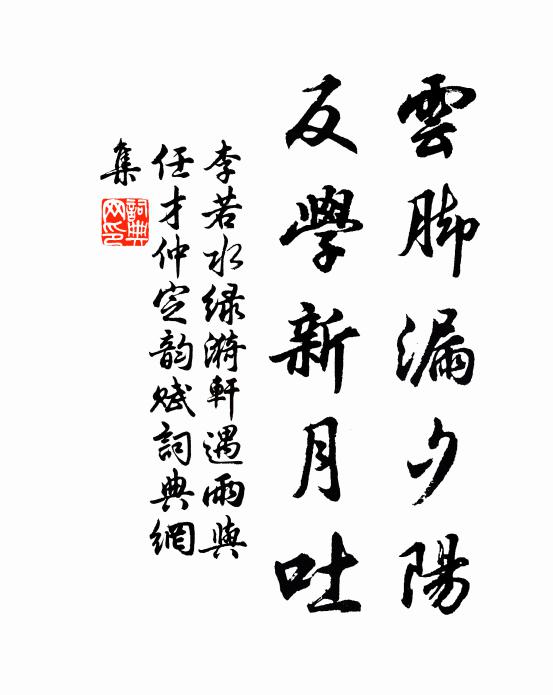 雲脚漏夕陽
反學新月吐
李若水绿漪軒遇雨與
任才仲定韵赋詞典網
集
詞典网印